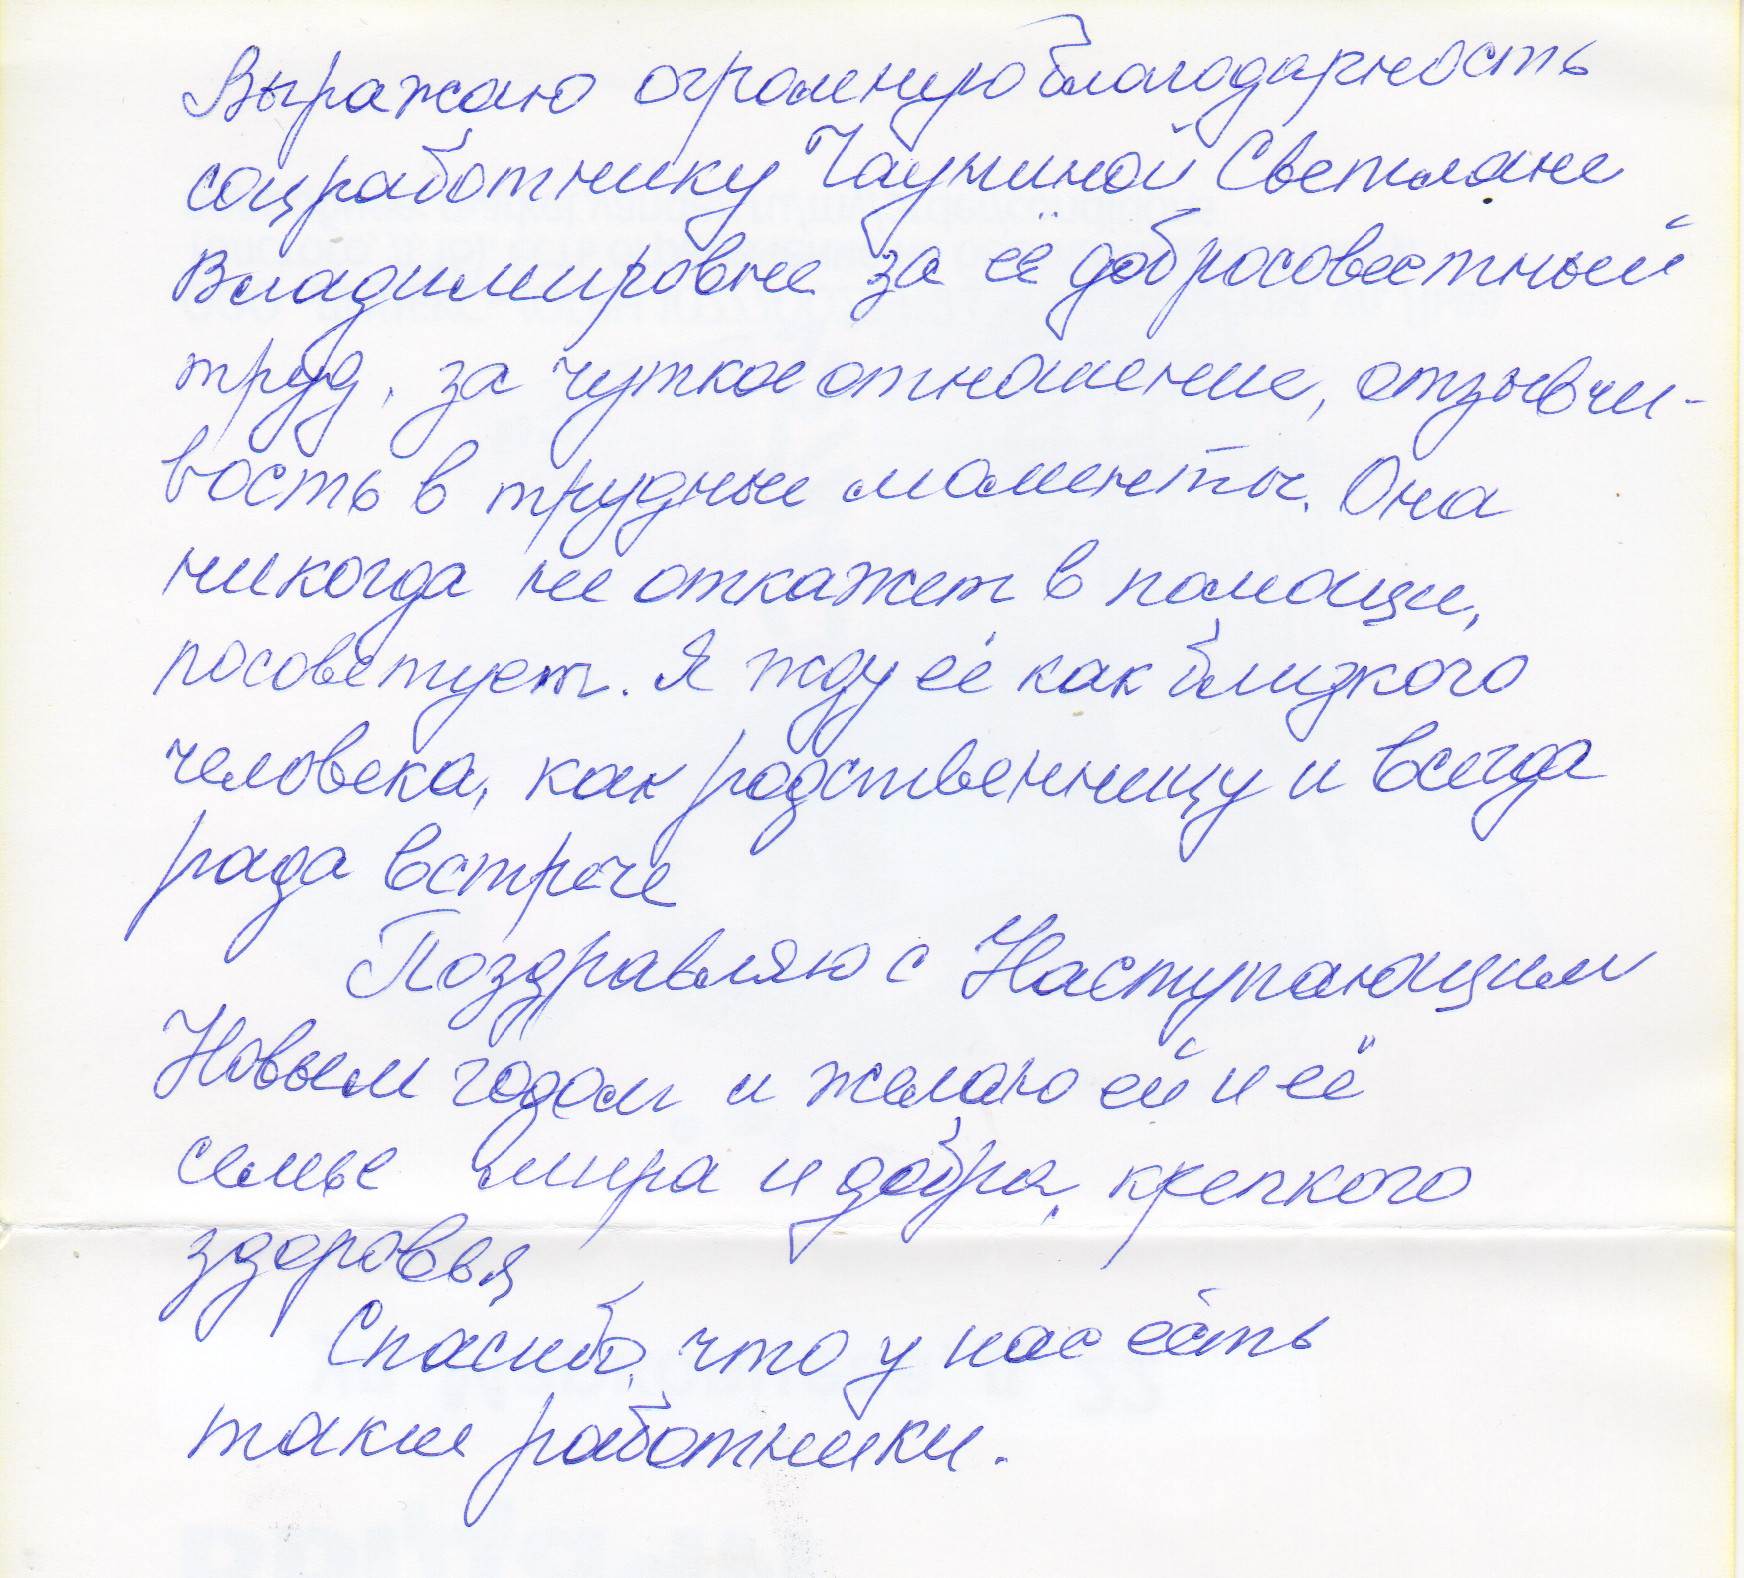 Выражаю огромную благодарность
соцработнику Чаучиной Светлане
Владимировне за её добросовестный
труд, за чуткое отношение, отзывчи-
вость в трудные моменты. Она
никогда не откажет в помощи,
посоветует. Я жду её как близкого
человека, как родственницу и всегда
рада встрече
Поздравляю с Наступающим
Новым годом и желаю ей и её
семье мира и добра, крепкого
здоровья
Спасибо, что у нас есть
такие работники.